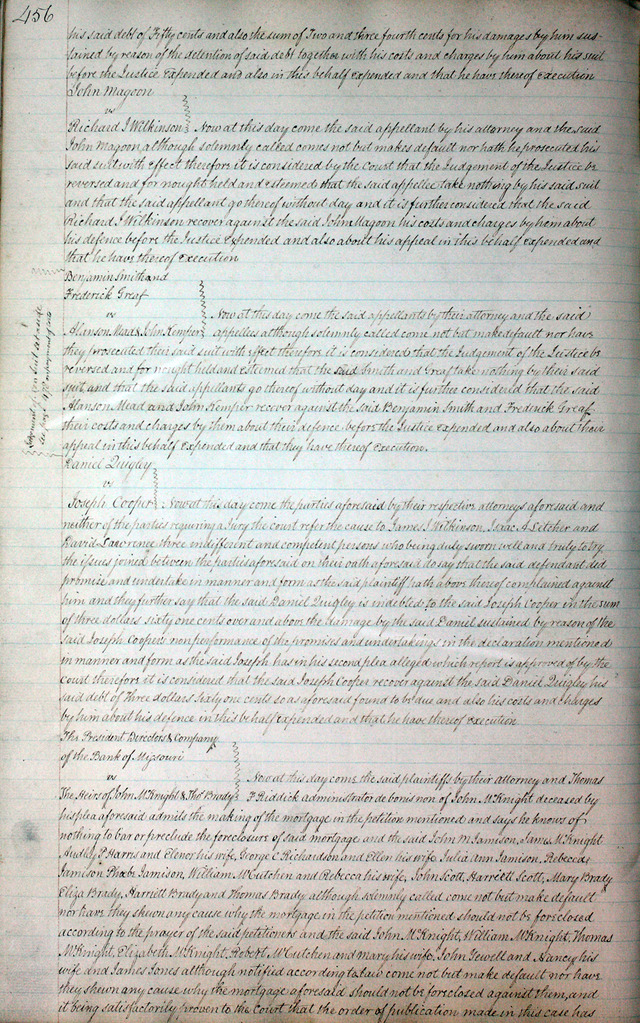 456
his said debt of Fifty cents and also the sum of Two and three fourth cents for his damages by him sus-
tained by reason of the detention of said debt together with his costs and charges by him about his suit
before the Justice Expended and also in this behalf expended and that he have thereof Execution
John Magoon
vs
Richard J Wilkinson Now at this day come the said appellant by his attorney and the said
John Magoon, although solemnly called comes not but makes default nor hath he prosecuted his
said suit with Effect therefore it is considered by the Court that the Judgement of the Justice be
reversed and for nought held and esteemed that the said appellee take nothing by his said suit
and that the said appellant go thereof without day and it is further considered that the said
Richard J Wilkinson recover against the said John Magoon his costs and charges by him about
his defence before the Justice Expended and also about his appeal in this behalf expended and
that he have thereof Execution
Benjamin Smith and
Frederick Greaf
vs Now at this day come the said appellants by their attorney and the said
Alanson Mead & John Kemper appellees although solemnly called come not but make default nor have
they prosecuted their said suit with effect therefore it is considered that the Judgement of the Justice be
reversed and for nought held and esteemed that the said Smith and Greaf take nothing by their said
suit and that the said appellants go thereof without day and it is further considered that the said
Alanson Mead and John Kemper recover against the said Benjamin Smith and Frederick Greaf
their costs and charges by them about their defence before the Justice Expended and also about their
appeal in this behalf Expended and that they have thereof Execution.
Daniel Quigley
vs
Joseph Cooper Now at this day come the parties aforesaid by their respective attorneys aforesaid and
neither of the parties requiring a Jury the court refer the cause to James J Wilkinson, Isaac A Letcher and
David Lawrence three indifferent and competent persons who being duly sworn well and truly to try
the issues joined between the parties aforesaid on their oath aforesaid do say that the said defendant did
promise and undertake in manner and form as the said plaintiff hath above thereof complained against
him and they further say that the said Daniel Quigley is indebted to the said Joseph Cooper in the sum
of three dollars sixty one cents over and above the damage by the said Daniel sustained by reason of the
said Joseph Coopers nonperformance of the promises and undertakings in the declaration mentioned
in manner and form as the said Joseph has in his second plea alleged which report is approved of by the
Court therefore it is considered that the said Joseph Cooper recover against the said Daniel Quigley his
said debt of three dollars Sixty one cents so as aforesaid found to be due and also his costs and charges
by him about his defence in this behalf Expended and that he have thereof Execution
The President Directors & Company
of the Bank of Missouri
vs Now at this day come the said plaintiffs by their attorney and Thomas
The Heirs of John McKnight & Thos Brady F Riddick administrator de bonis non of John McKnight deceased by
his plea aforesaid admits the making of the mortgage in the petition mentioned and says he knows of
nothing to bar or preclude the foreclosure of said mortgage and the said John M Jamison, James McKnight
Audley P Harris and Elenor his wife, George C Richardson and Ellen his wife, Julia Ann Jamison, Rebecca
Jamison Phoebe Jamison, William McCutchen and Rebecca his wife, John Scott, Harriett Scott, Mary Brady
Eliza Brady, Harriett Brady and Thomas Brady although solemnly called come not but make default
nor have they shewn any cause why the mortgage in the petition mentioned should not be foreclosed
according to the prayer of the said petitioners and the said John McKnight, William McKnight, Thomas
McKnight, Elizabeth McKnight, Robert McCutchen and Mary his wife, John Sewell and Nancy his
wife and James Jones although notified according to law come not but make default nor have
they shewn any cause why the mortgage aforesaid should not be foreclosed against them, and
it being satisfactorily proven to the Court that the order of publication made in this case has